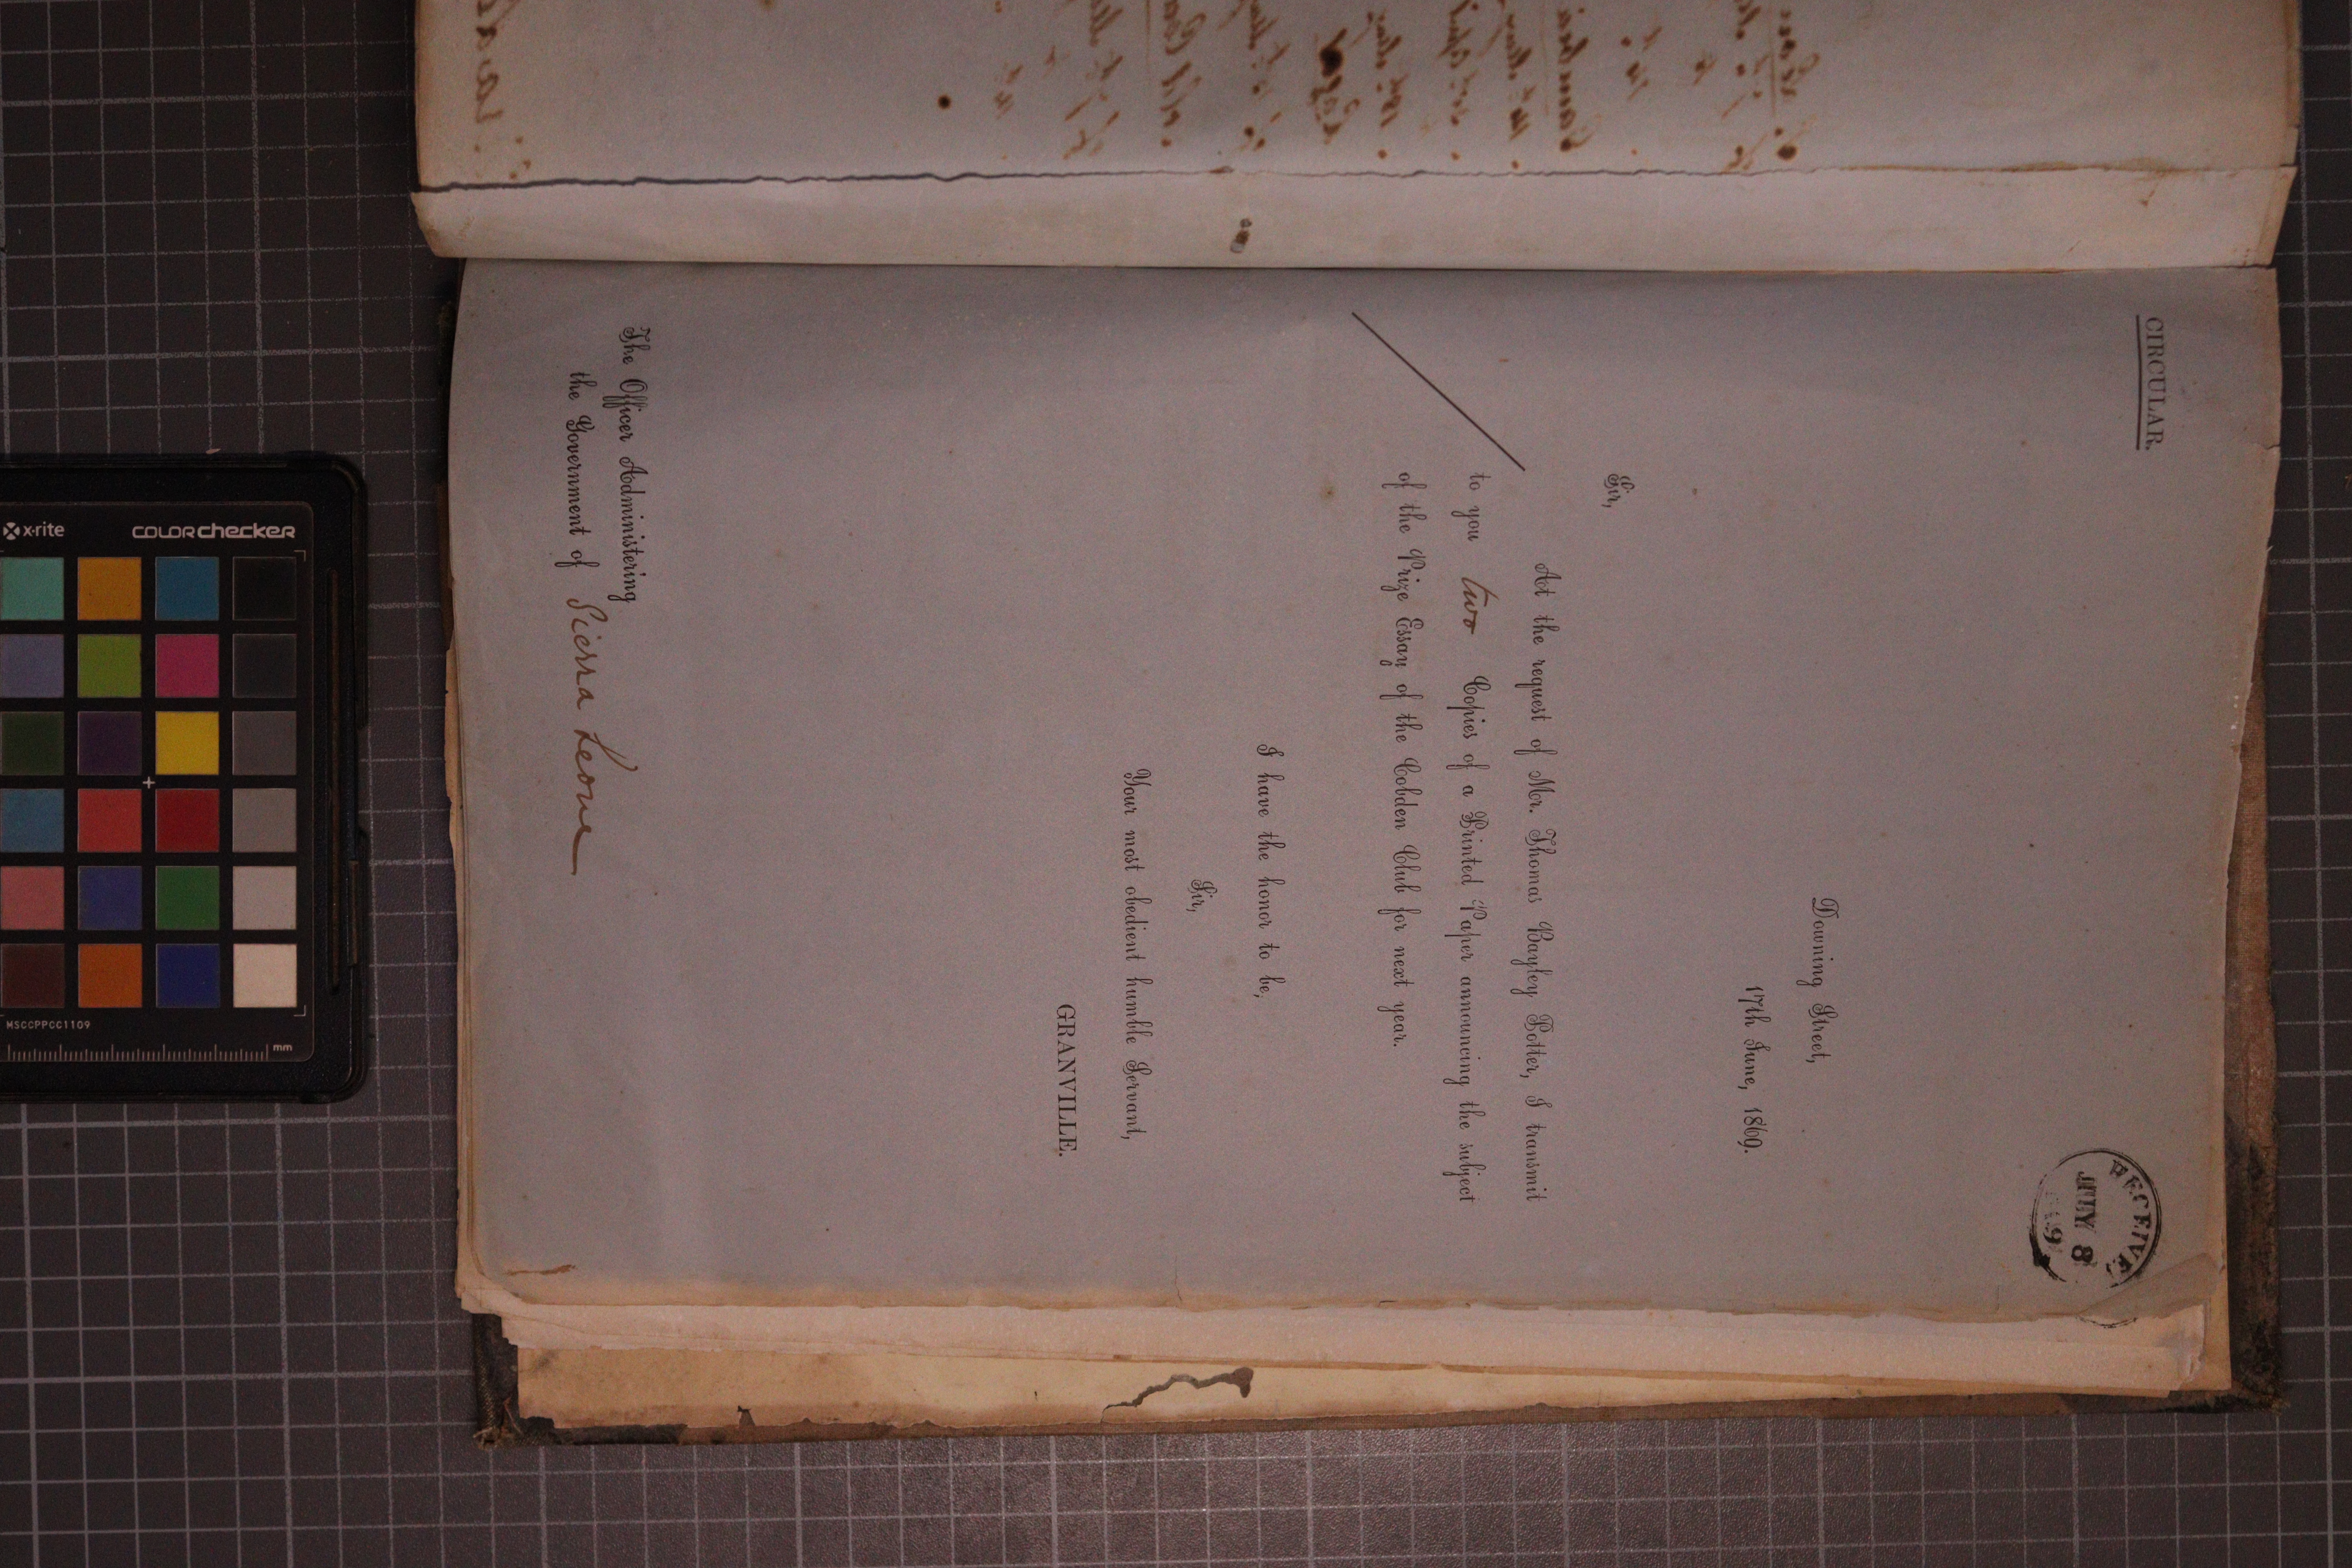 CIRCULAR.
RECEIVE
JULY 8
Downing Street,
17th June, 1869.
Sir,
At the request of Mr. Thomas Bayley Potter, I transmit
to you two Copies of a Printed Paper announcing the subject
of the Prize Essay of the Cobden Club for next year.
I have the honor to be,
Sir,
Your most obedient humble Servant,
GRANVILLE.
The Officer Administering
the Government of Sierra Leone
x-rite colorchecker
MSCCPPCC1109
mm